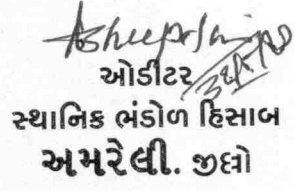 ઓડીટર
સ્થાનિક ભંડોળ હિસાબ
અમરેલી. જીલ્લો